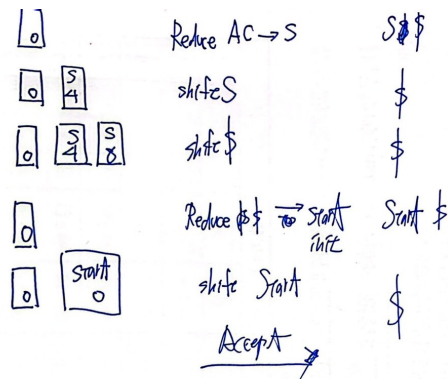 0 Reduce AC → S S$
0 S 4 shifte S $
0 S 4 S 8 shifte $ $
0 Reduce $ → Start Start $
init
0 Start 0 shifte Start $
Accept